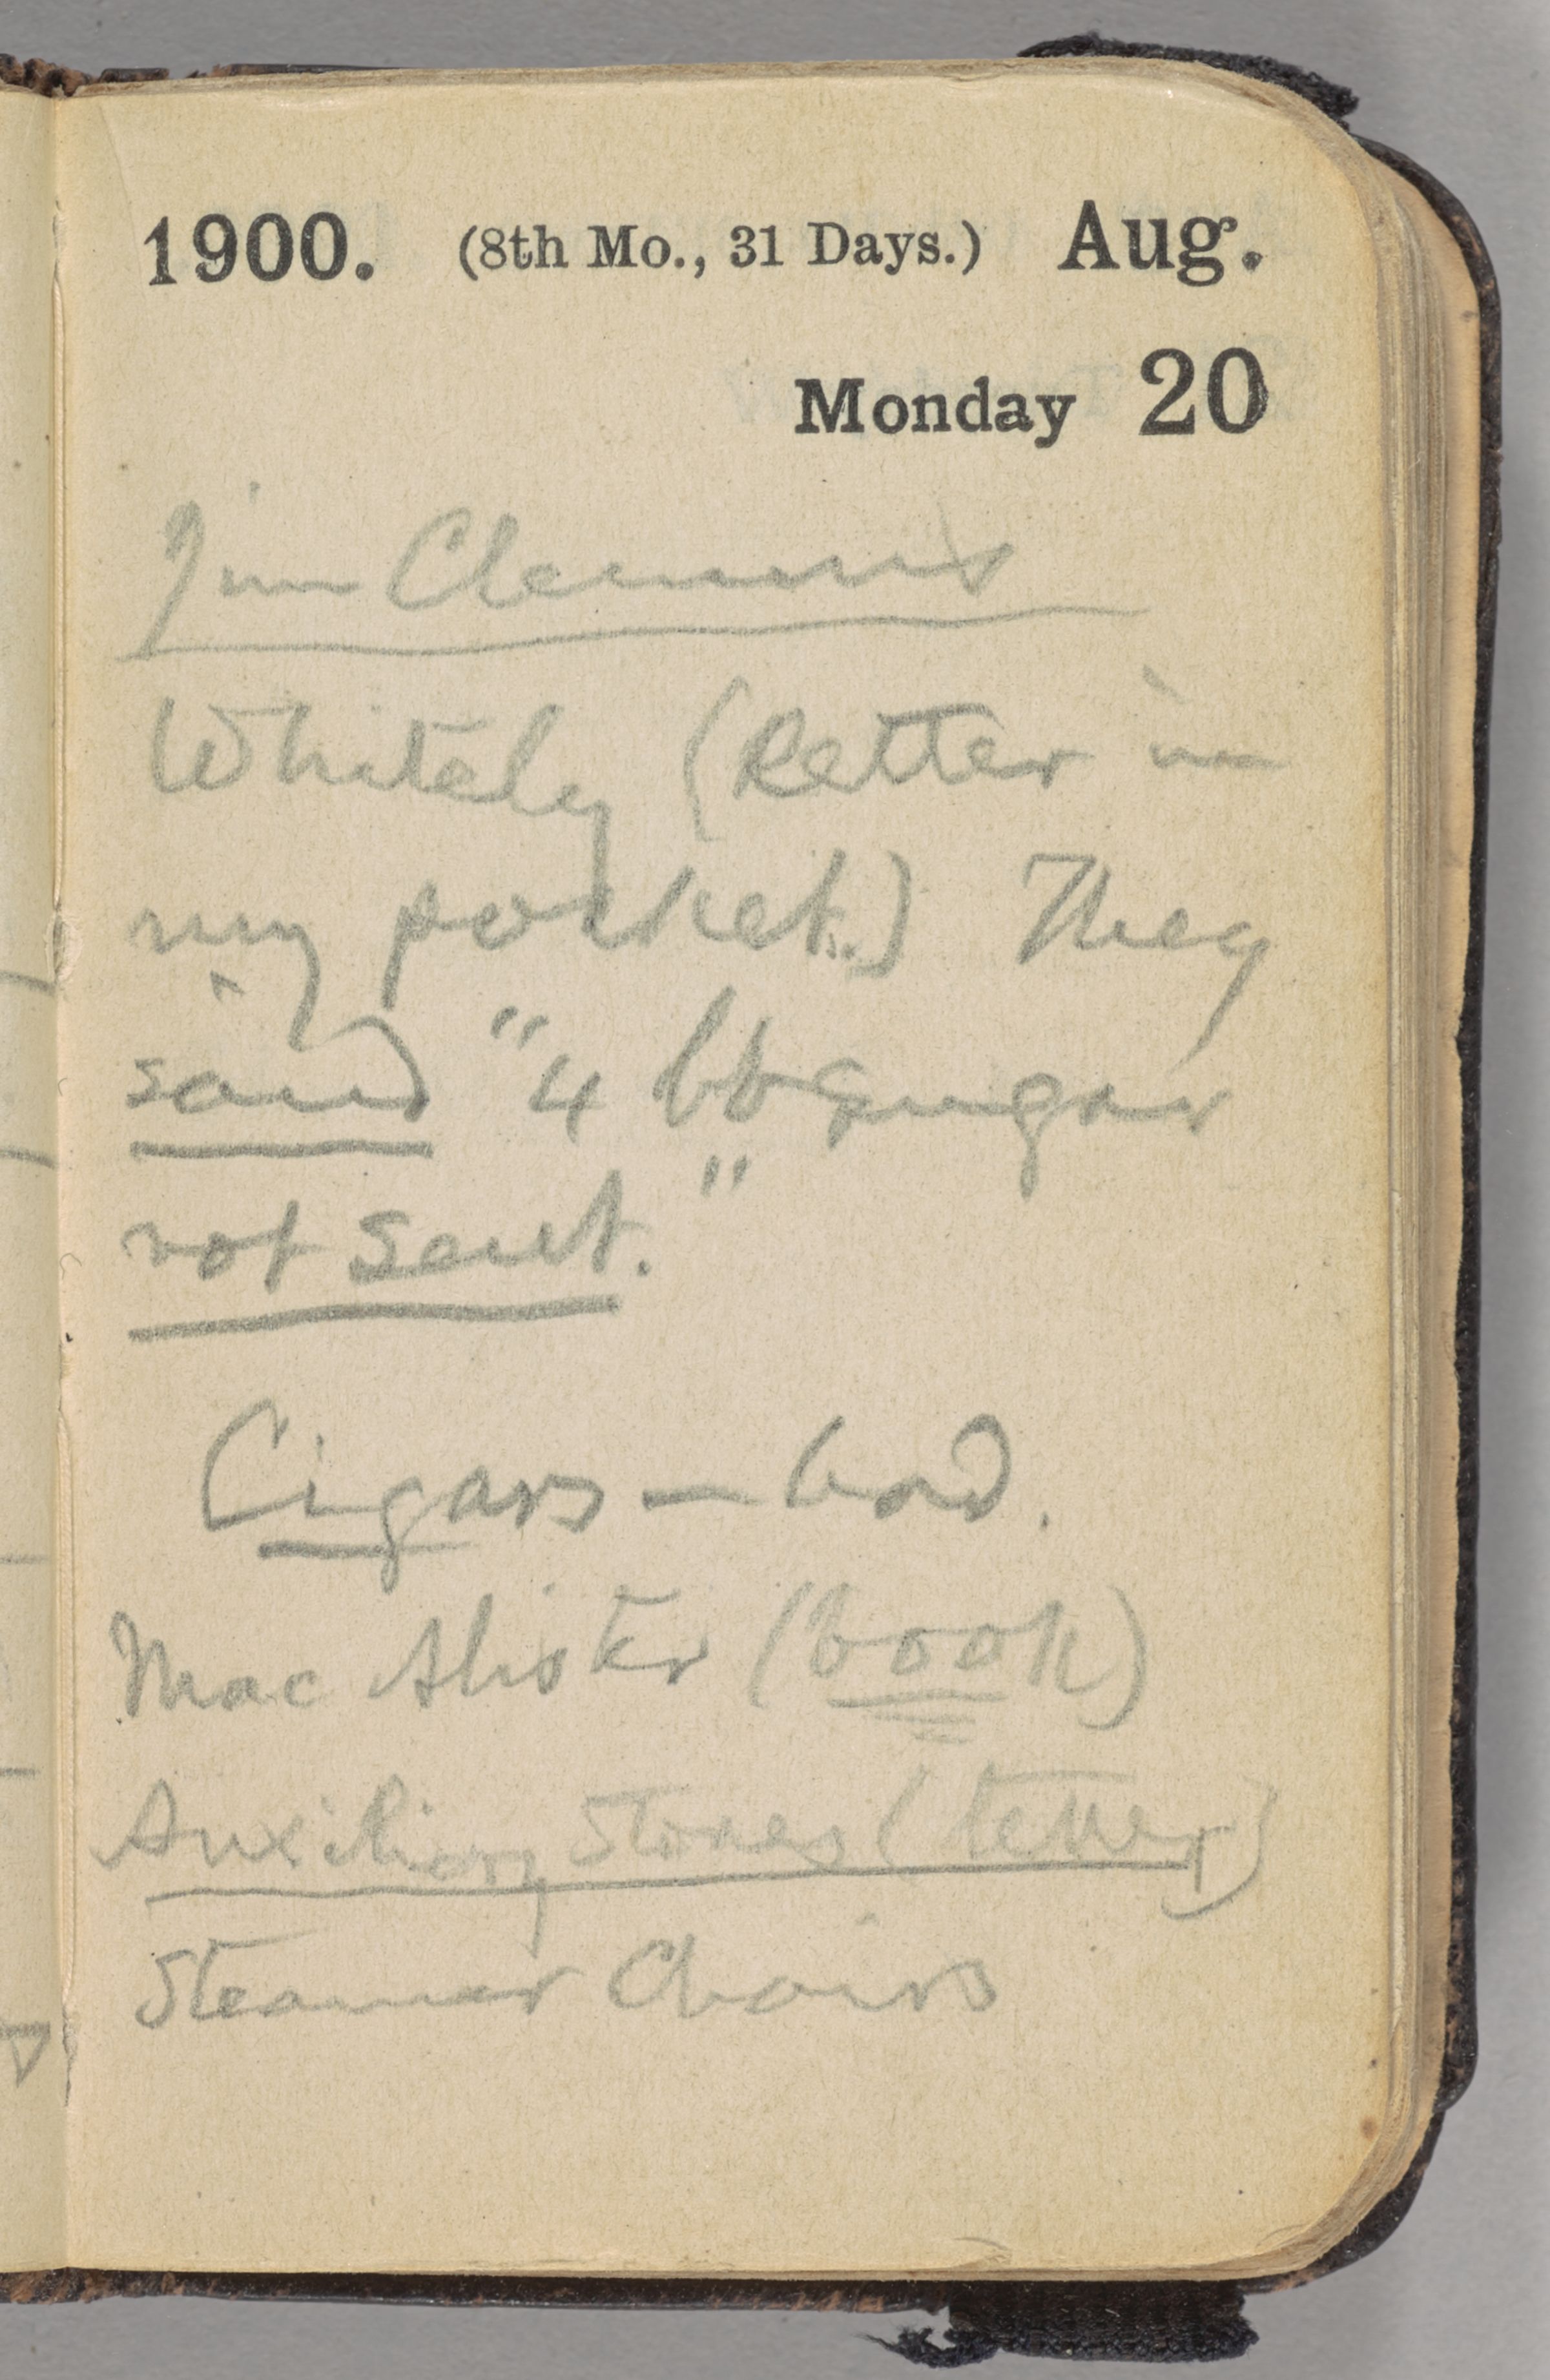 1900. (8th Mo., 31 Days.) Aug.
Monday 20
Jim Clemens
Whitely (Letter in
my pocket.) They
said "4 lb Sugar
not sent."
Cigars — bad.
Mac Alister (book)
Auxiliary Stores (letter)
Steamer Chairs